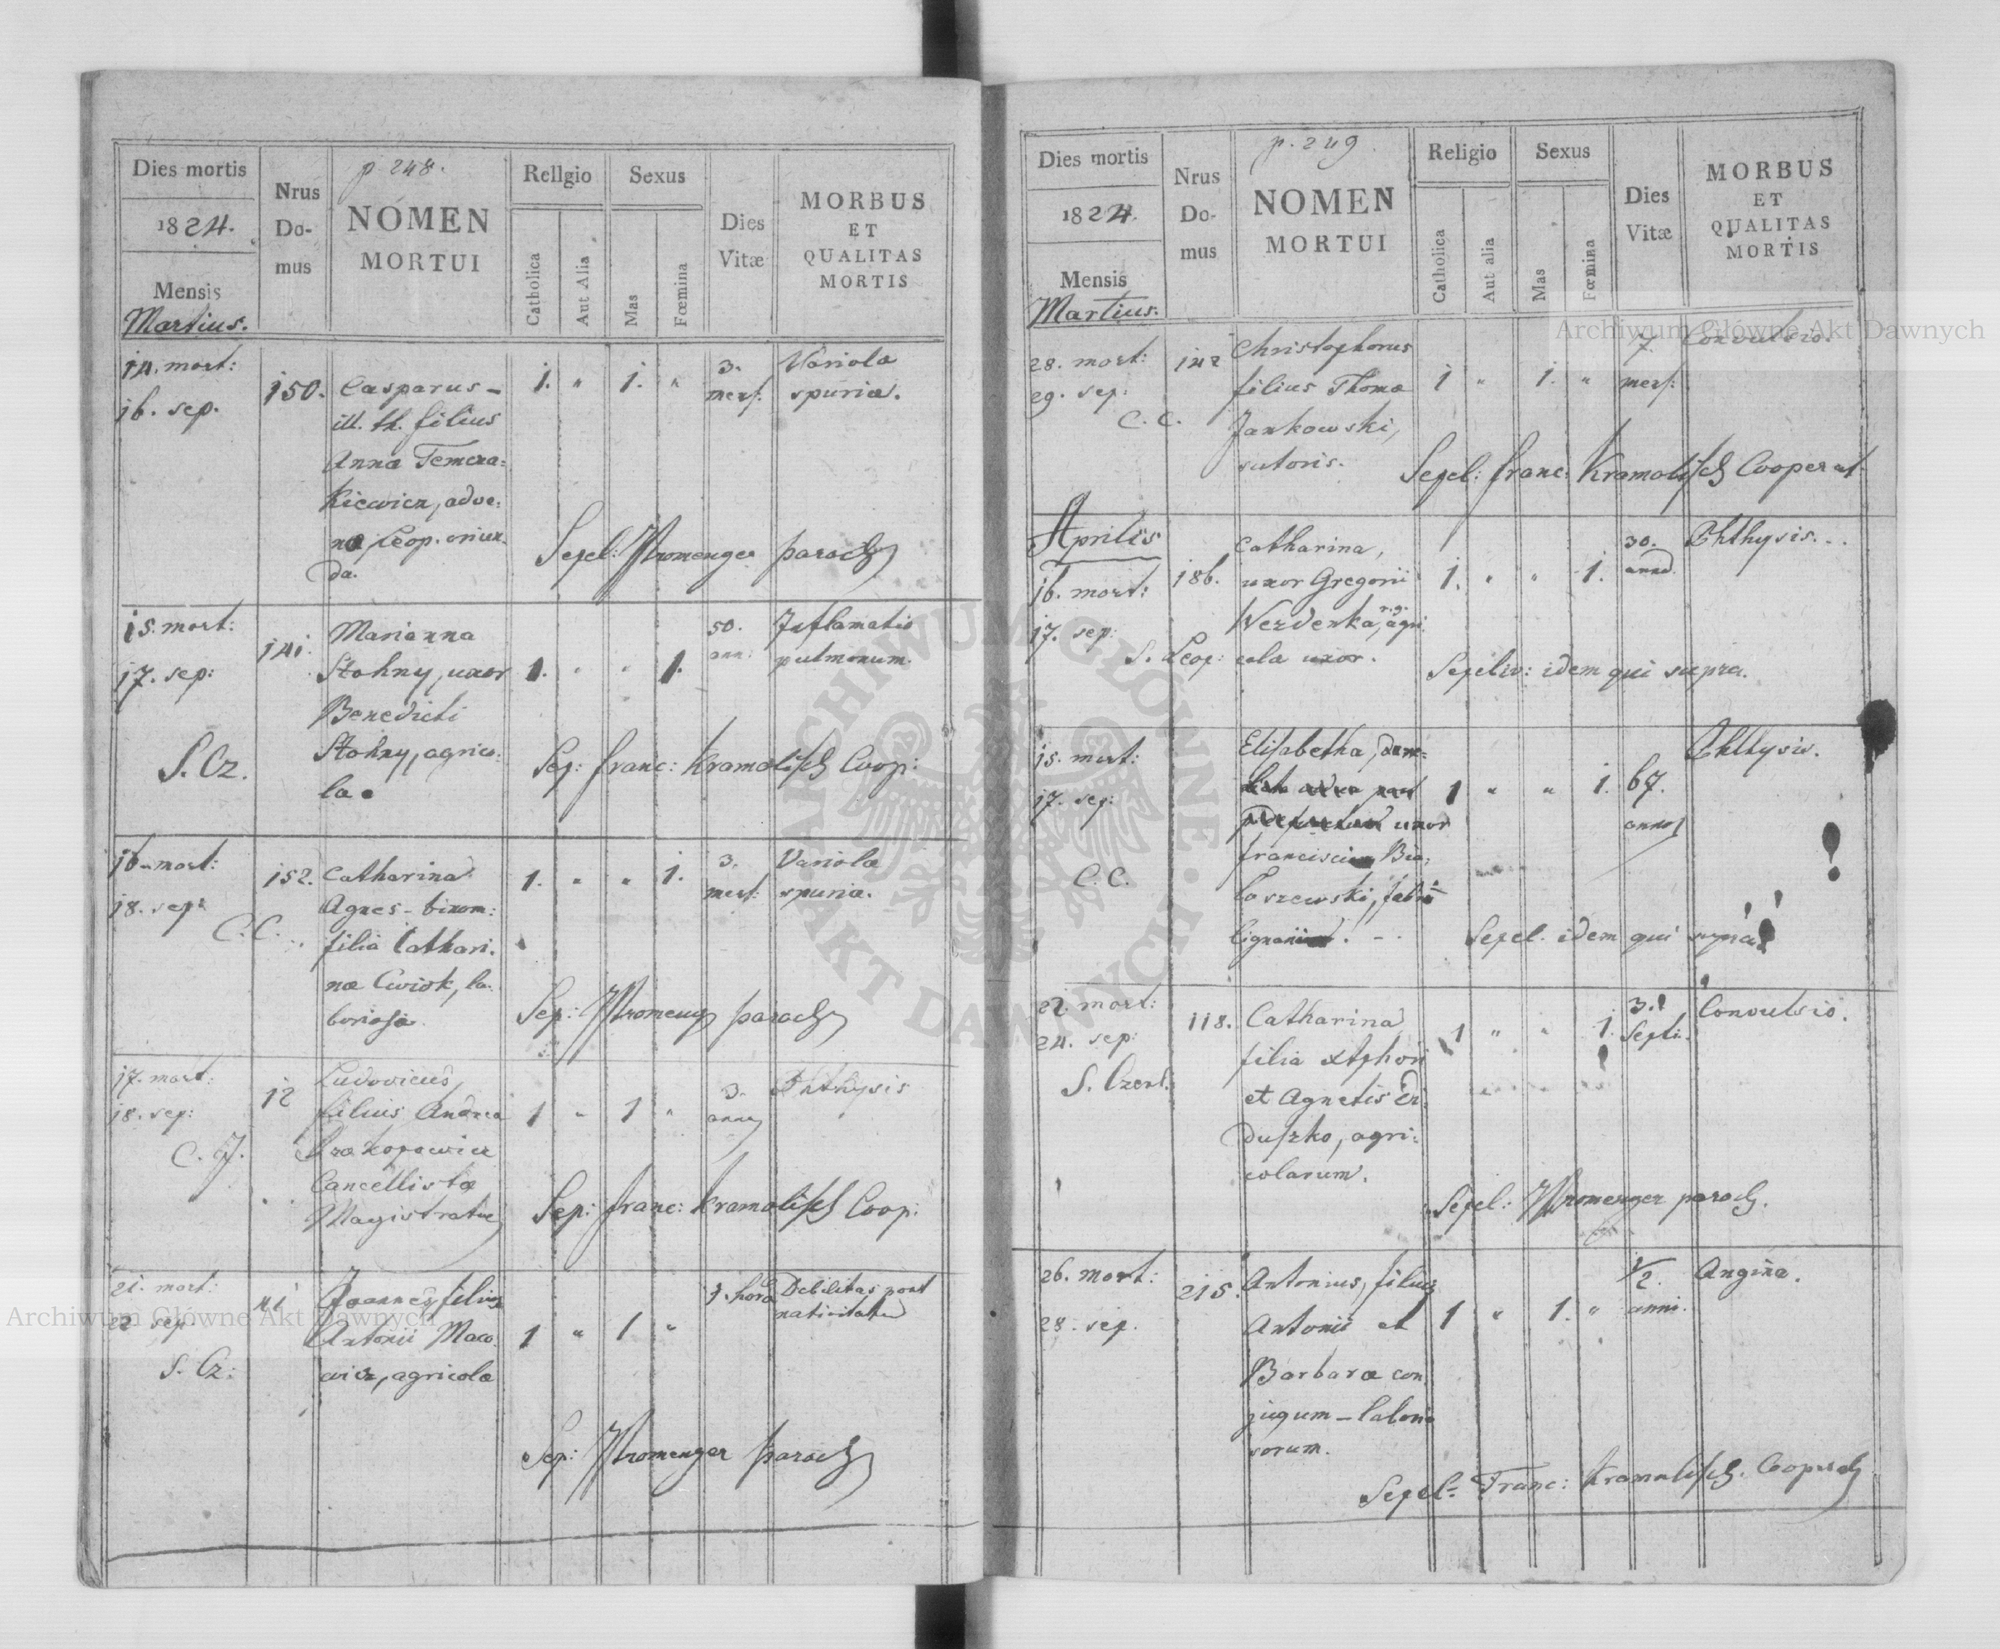 Dies mortis
1824.
Mensis
Martius.
Nrus
Do-
mus
p 248.
NOMEN
MORTUI
Religio
Catholica
Aut Alia
Sexus
Mas
Fœmina
Dies
Vitæ
MORBUS
ET
QUALITAS
MORTIS
14. mort:
16. sep.
150.
Casparus –
ill. th. filius
Annæ Temera:
kiewicz, adve:
næ Leop. oriun.
da.
1. " 1. "
3.
mens:
Variolæ
spuriæ.
Sepel: Stromenger paroch
15. mort:
17. sep:
S. Cz.
141.
Marianna
Stohny, uxor
Benedicti
Stohny, agrico:
læ.
1. " " 1.
50.
ann:
Inflamatio
pulmonum.
Sep: Franc: Kramolisch Coop:
16. mort:
18. sep:
C. C.
152.
Catharina
Agnes – binom:
filia Cathari:
næ Cwiok, la:
boriosæ.
1. " " 1.
3.
mens:
Variolæ
spuriæ.
Sep: Stromeng paroch
17. mort:
18. sep:
C. J.
12
Ludovicus,
filius Andreæ
Prokopowicz
Cancellistæ
Magistratus
1 " 1 "
3.
anny
Phthysis
Sep: Franc: Kramolisch Coop:
21. mort:
22 sep
S. Cz:
41
Joannes filius
Antonii Maco:
wicz, agricolæ
1 " 1 "
3. horæ
Debilitas post
nativitatem
Sep: Stromenger paroch
Dies mortis
1824.
Mensis
Martius.
Nrus
Do-
mus
p. 249.
NOMEN
MORTUI
Religio
Catholica
Aut alia
Sexus
Mas
Fœmina
Dies
Vitæ
MORBUS
ET
QUALITAS
MORTIS
28. mort:
29. sep:
C. C.
142
Christophorus
filius Thomæ
Jankowski,
sutoris.
1 " 1. "
7.
mens:
Convulsio.
Sepel: Franc: Kramolisch Cooperat.
Aprilis
16. mort:
17. sep:
S. Leop:
186.
Catharina,
uxor Gregorii
Werdenka, r.g. agri
colæ uxor.
1. " " 1.
30.
annor.
Phthysis..
Sepeliv: idem qui supra.
15. mort:
17. sep:
C. C.
Elisabetha,
uxor
Francisci Bia:
loszewski, fabri
lignarii. - -
1 " " 1.
67.
annor
Phthysis.
Sepel. idem qui supra
22. mort:
24. sep:
S. Czerl.
118.
Catharina
filia Xtphori
et Agnetis Di
duszko, agri:
colarum.
1 " " 1.
3.
Septi.
Convulsio.
Sepel: Stromenger paroch.
26. mort:
28. sep.
215.
Antonius, filius
Antonii et
Barbaræ con
jugum – labori
sorum.
1 " 1. "
1/2.
anni.
Angina.
Sepel: Franc: Kramolisch. Cooperat
Archiwum Główne Akt Dawnych
Archiwum Główne Akt Dawnych
ARCHIWUM GŁÓWNE
AKT DAWNYCH